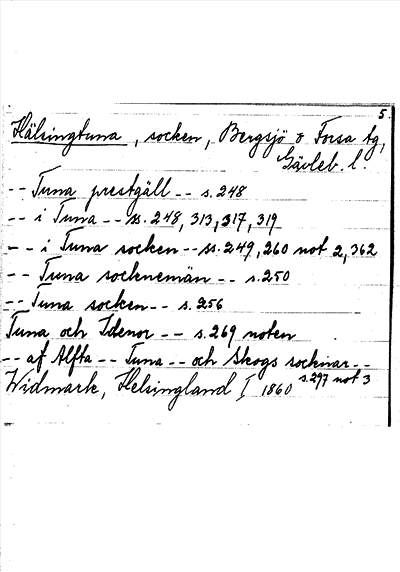 5.
Hälsingtuna, socken, Bergsjö o Forsa tg,
Gävleb. l.
-- Tuna prestgäll -- s. 248
-- i Tuna -- ss. 248, 313, 317, 319
-- i Tuna socken -- ss. 249, 260 not 2, 362
-- Tuna socknemän -- s. 250
-- Tuna socken -- s. 256
Tuna och Idenor -- s. 269 noten
-- af Alfta -- Tuna -- och Skogs socknar --
s. 297 not 3
Widmark, Helsingland I 1860